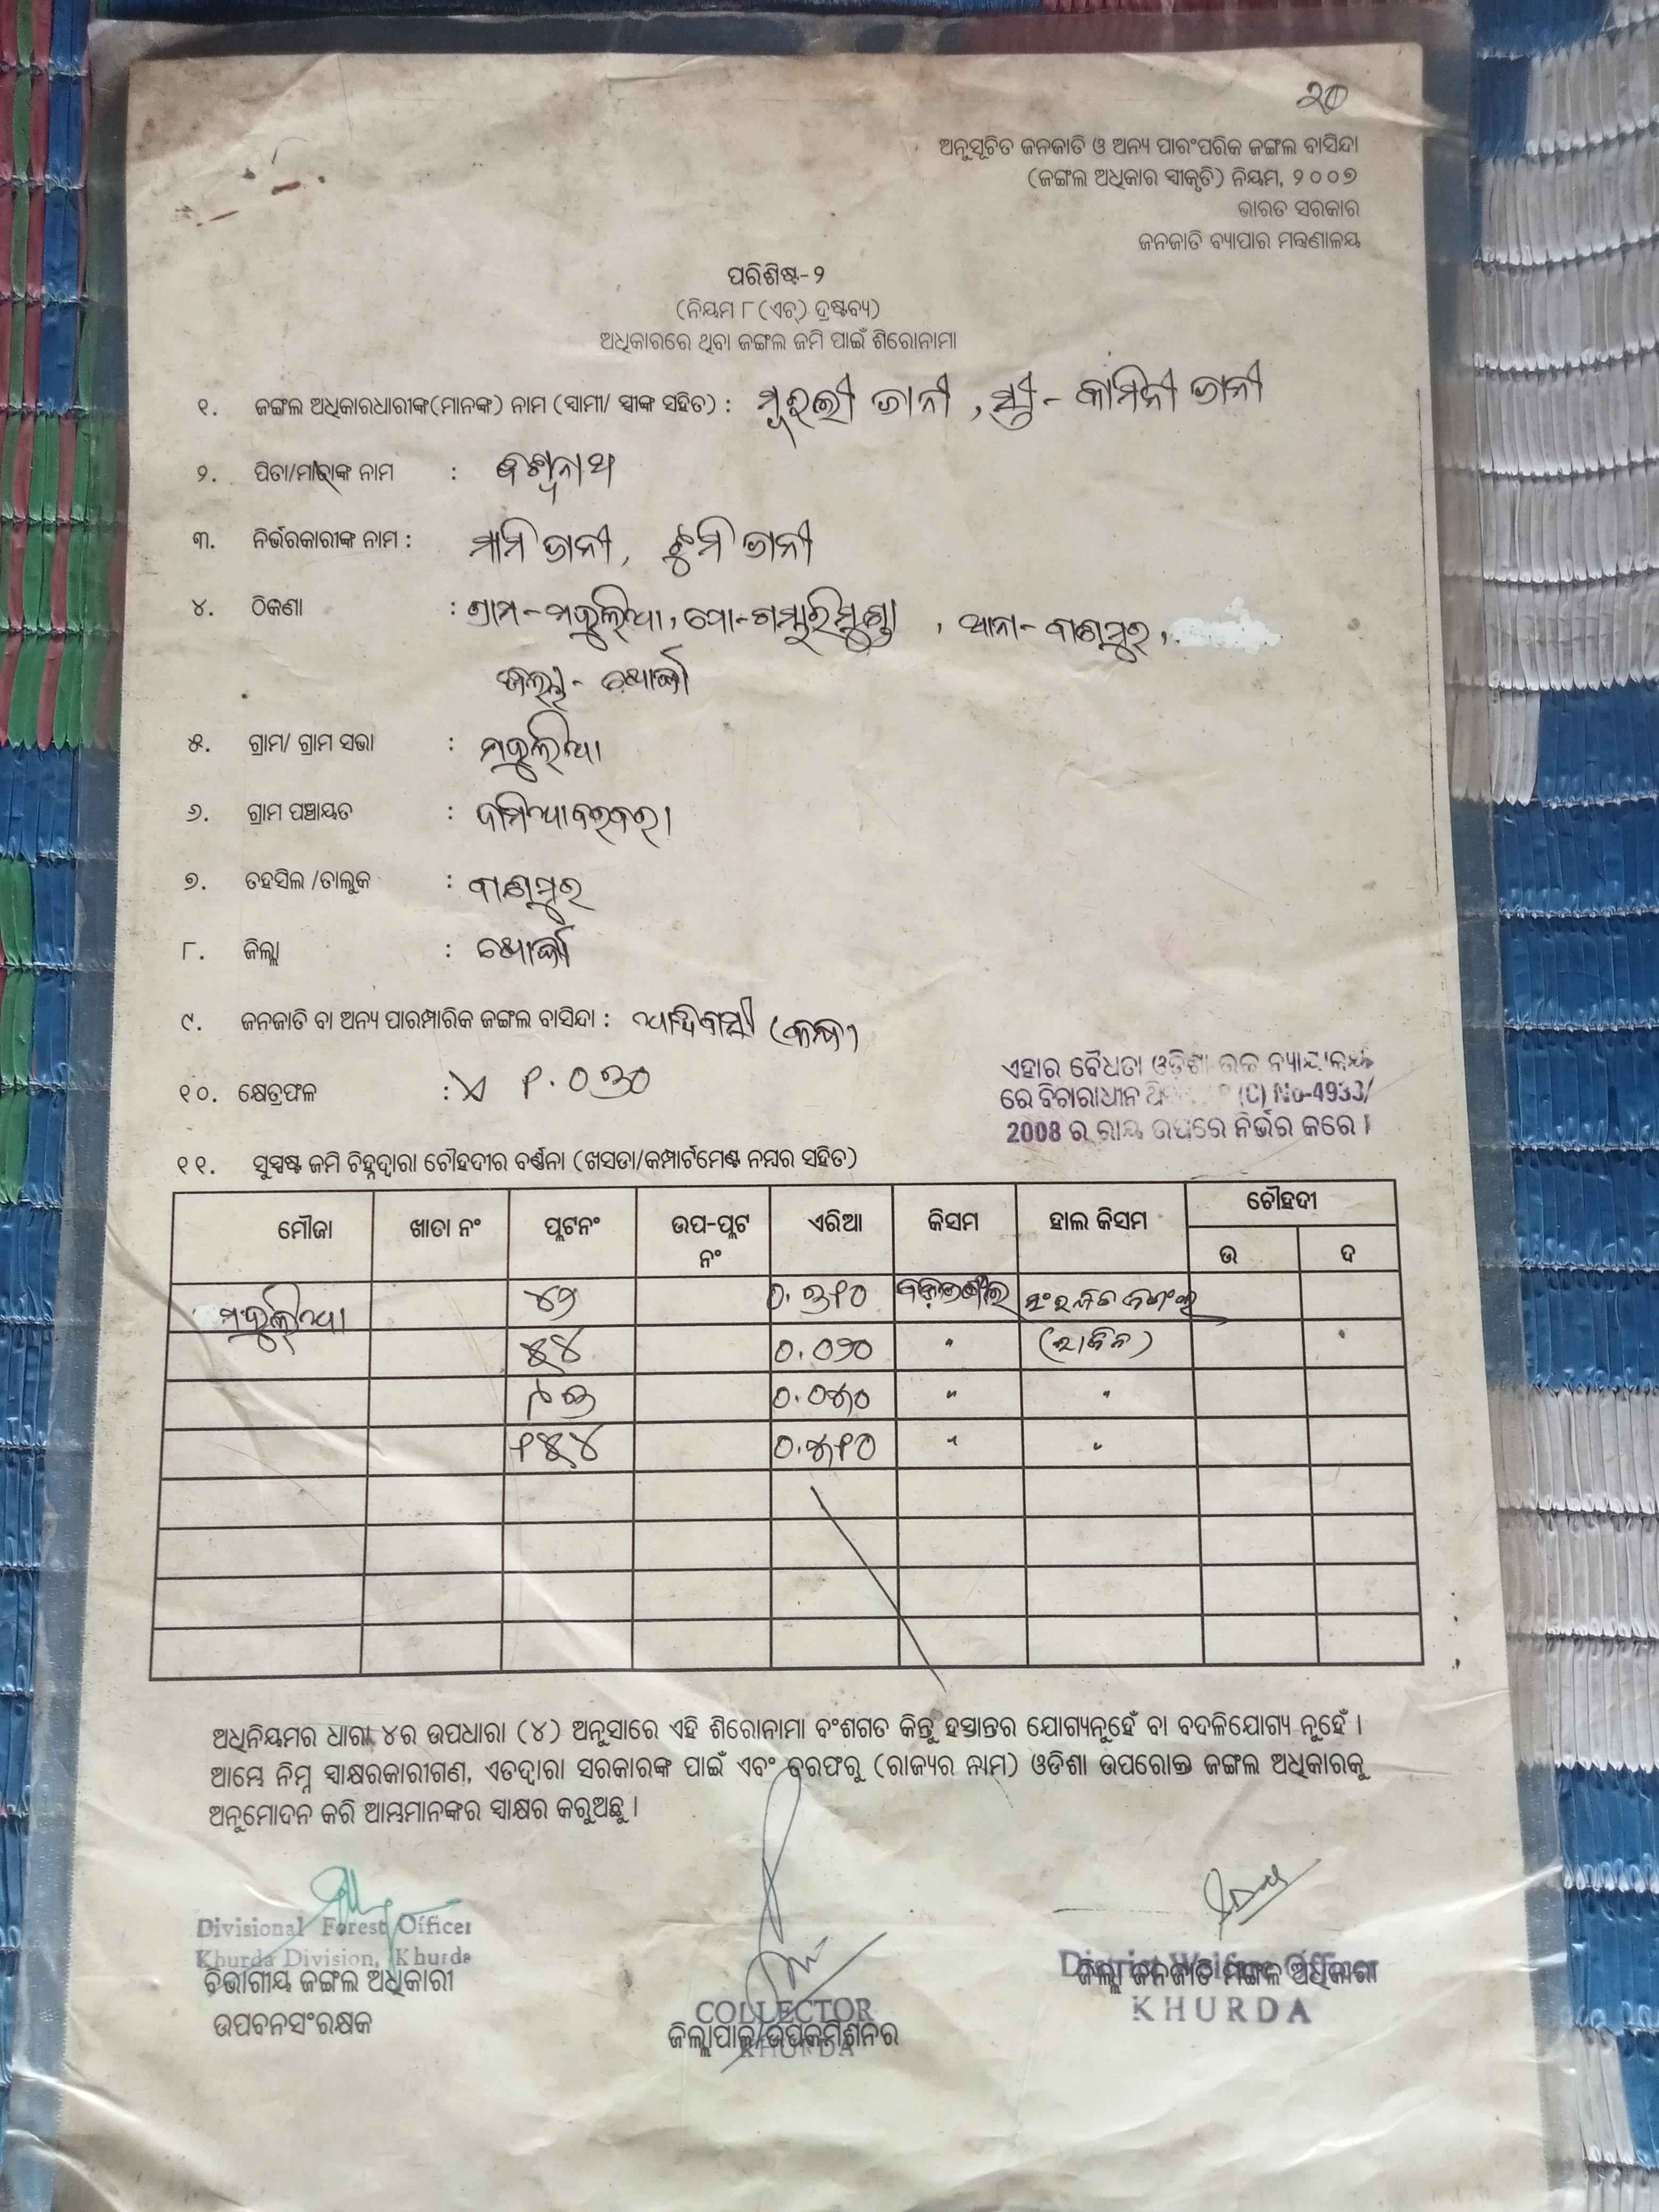 ୨୦
ଅନୁସୂଚିତ ଜନଜାତି ଓ ଅନ୍ୟ ପାରଂପରିକ ଜଙ୍ଗଲ ବାସିନ୍ଦା
(ଜଙ୍ଗଲ ଅଧିକାର ସ୍ୱୀକୃତି) ନିୟମ, ୨୦୦୭
ଭାରତ ସରକାର
ଜନଜାତି ବ୍ୟାପାର ମନ୍ତ୍ରଣାଳୟ
ପରିଶିଷ୍ଟ-୨
(ନିୟମ ୮(ଏଚ୍) ଦ୍ରଷ୍ଟବ୍ୟ)
ଅଧିକାରରେ ଥିବା ଜଙ୍ଗଲ ଜମି ପାଇଁ ଶିରୋନାମା
୧. ଜଙ୍ଗଲ ଅଧିକାରଧାରୀଙ୍କ(ମାନଙ୍କ) ନାମ (ସ୍ୱାମୀ/ ସ୍ତ୍ରୀଙ୍କ ସହିତ) : ମୂରଲୀ ଜାନୀ, ସ୍ତ୍ରୀ- କାମିନୀ ଜାନୀ
୨. ପିତା/ମାତାଙ୍କ ନାମ :
୩. ନିର୍ଭରକାରୀଙ୍କ ନାମ : ମାମି ଜାନୀ, ଟୁମି ଜାନୀ
୪. ଠିକଣା : ଗ୍ରାମ- , ପୋ- , ଥାନା- ବାଣପୁର,
ଜିଲ୍ଲା- ଖୋର୍ଦ୍ଧା
୫. ଗ୍ରାମ/ ଗ୍ରାମ ସଭା :
୬. ଗ୍ରାମ ପଞ୍ଚାୟତ :
୭. ତହସିଲ /ତାଲୁକ : ବାଣପୁର
୮. ଜିଲ୍ଲା : ଖୋର୍ଦ୍ଧା
୯. ଜନଜାତି ବା ଅନ୍ୟ ପାରମ୍ପାରିକ ଜଙ୍ଗଲ ବାସିନ୍ଦା : ଆଦିବାସୀ (କନ୍ଧ)
୧୦. କ୍ଷେତ୍ରଫଳ : ୧.୦୩୦
ଏହାର ବୈଧତା ଓଡ଼ିଶା ଉଚ୍ଚ ନ୍ୟାୟାଳୟ
ରେ ବିଚାରାଧୀନ (C) No-4933/
2008 ର ରାୟ ଉପରେ ନିର୍ଭର କରେ ।
୧୧. ସୁସ୍ପଷ୍ଟ ଜମି ଚିହ୍ନଦ୍ୱାରା ଚୌହଦୀର ବର୍ଣ୍ଣନା (ଖସଡା/କମ୍ପାର୍ଟମେଣ୍ଟ ନମ୍ବର ସହିତ)
ମୌଜା ଖାତା ନଂ ପ୍ଲଟନଂ ଉପ-ପ୍ଲଟ ନଂ ଏରିଆ କିସମ ହାଲ କିସମ ଚୌହଦୀ
ଉ ଦ
୪୨ ୦.୩୧୦
୫୪ ୦.୦୨୦ "
୯୩ ୦.୦୬୦ " "
୧୫୪ ୦.୬୧୦ " "
ଅଧିନିୟମର ଧାରା ୪ର ଉପଧାରା (୪) ଅନୁସାରେ ଏହି ଶିରୋନାମା ବଂଶଗତ କିନ୍ତୁ ହସ୍ତାନ୍ତର ଯୋଗ୍ୟନୁହେଁ ବା ବଦଳିଯୋଗ୍ୟ ନୁହେଁ ।
ଆମ୍ଭେ ନିମ୍ନ ସ୍ୱାକ୍ଷରକାରୀଗଣ, ଏତଦ୍ୱାରା ସରକାରଙ୍କ ପାଇଁ ଏବଂ ତରଫରୁ (ରାଜ୍ୟର ନାମ) ଓଡିଶା ଉପରୋକ୍ତ ଜଙ୍ଗଲ ଅଧିକାରକୁ
ଅନୁମୋଦନ କରି ଆମ୍ଭମାନଙ୍କର ସ୍ୱାକ୍ଷର କରୁଅଛୁ ।
Divisional Forest Officer
Khurda Division, Khurda
ବିଭାଗୀୟ ଜଙ୍ଗଲ ଅଧିକାରୀ
ଉପବନସଂରକ୍ଷକ
COLLECTOR
ଜିଲ୍ଲାପାଳ/ଉପକମିଶନର
KHURDA
District Welfare Officer
ଜିଲ୍ଲା ଜନଜାତି ମଙ୍ଗଳ ଅଧିକାରୀ
KHURDA